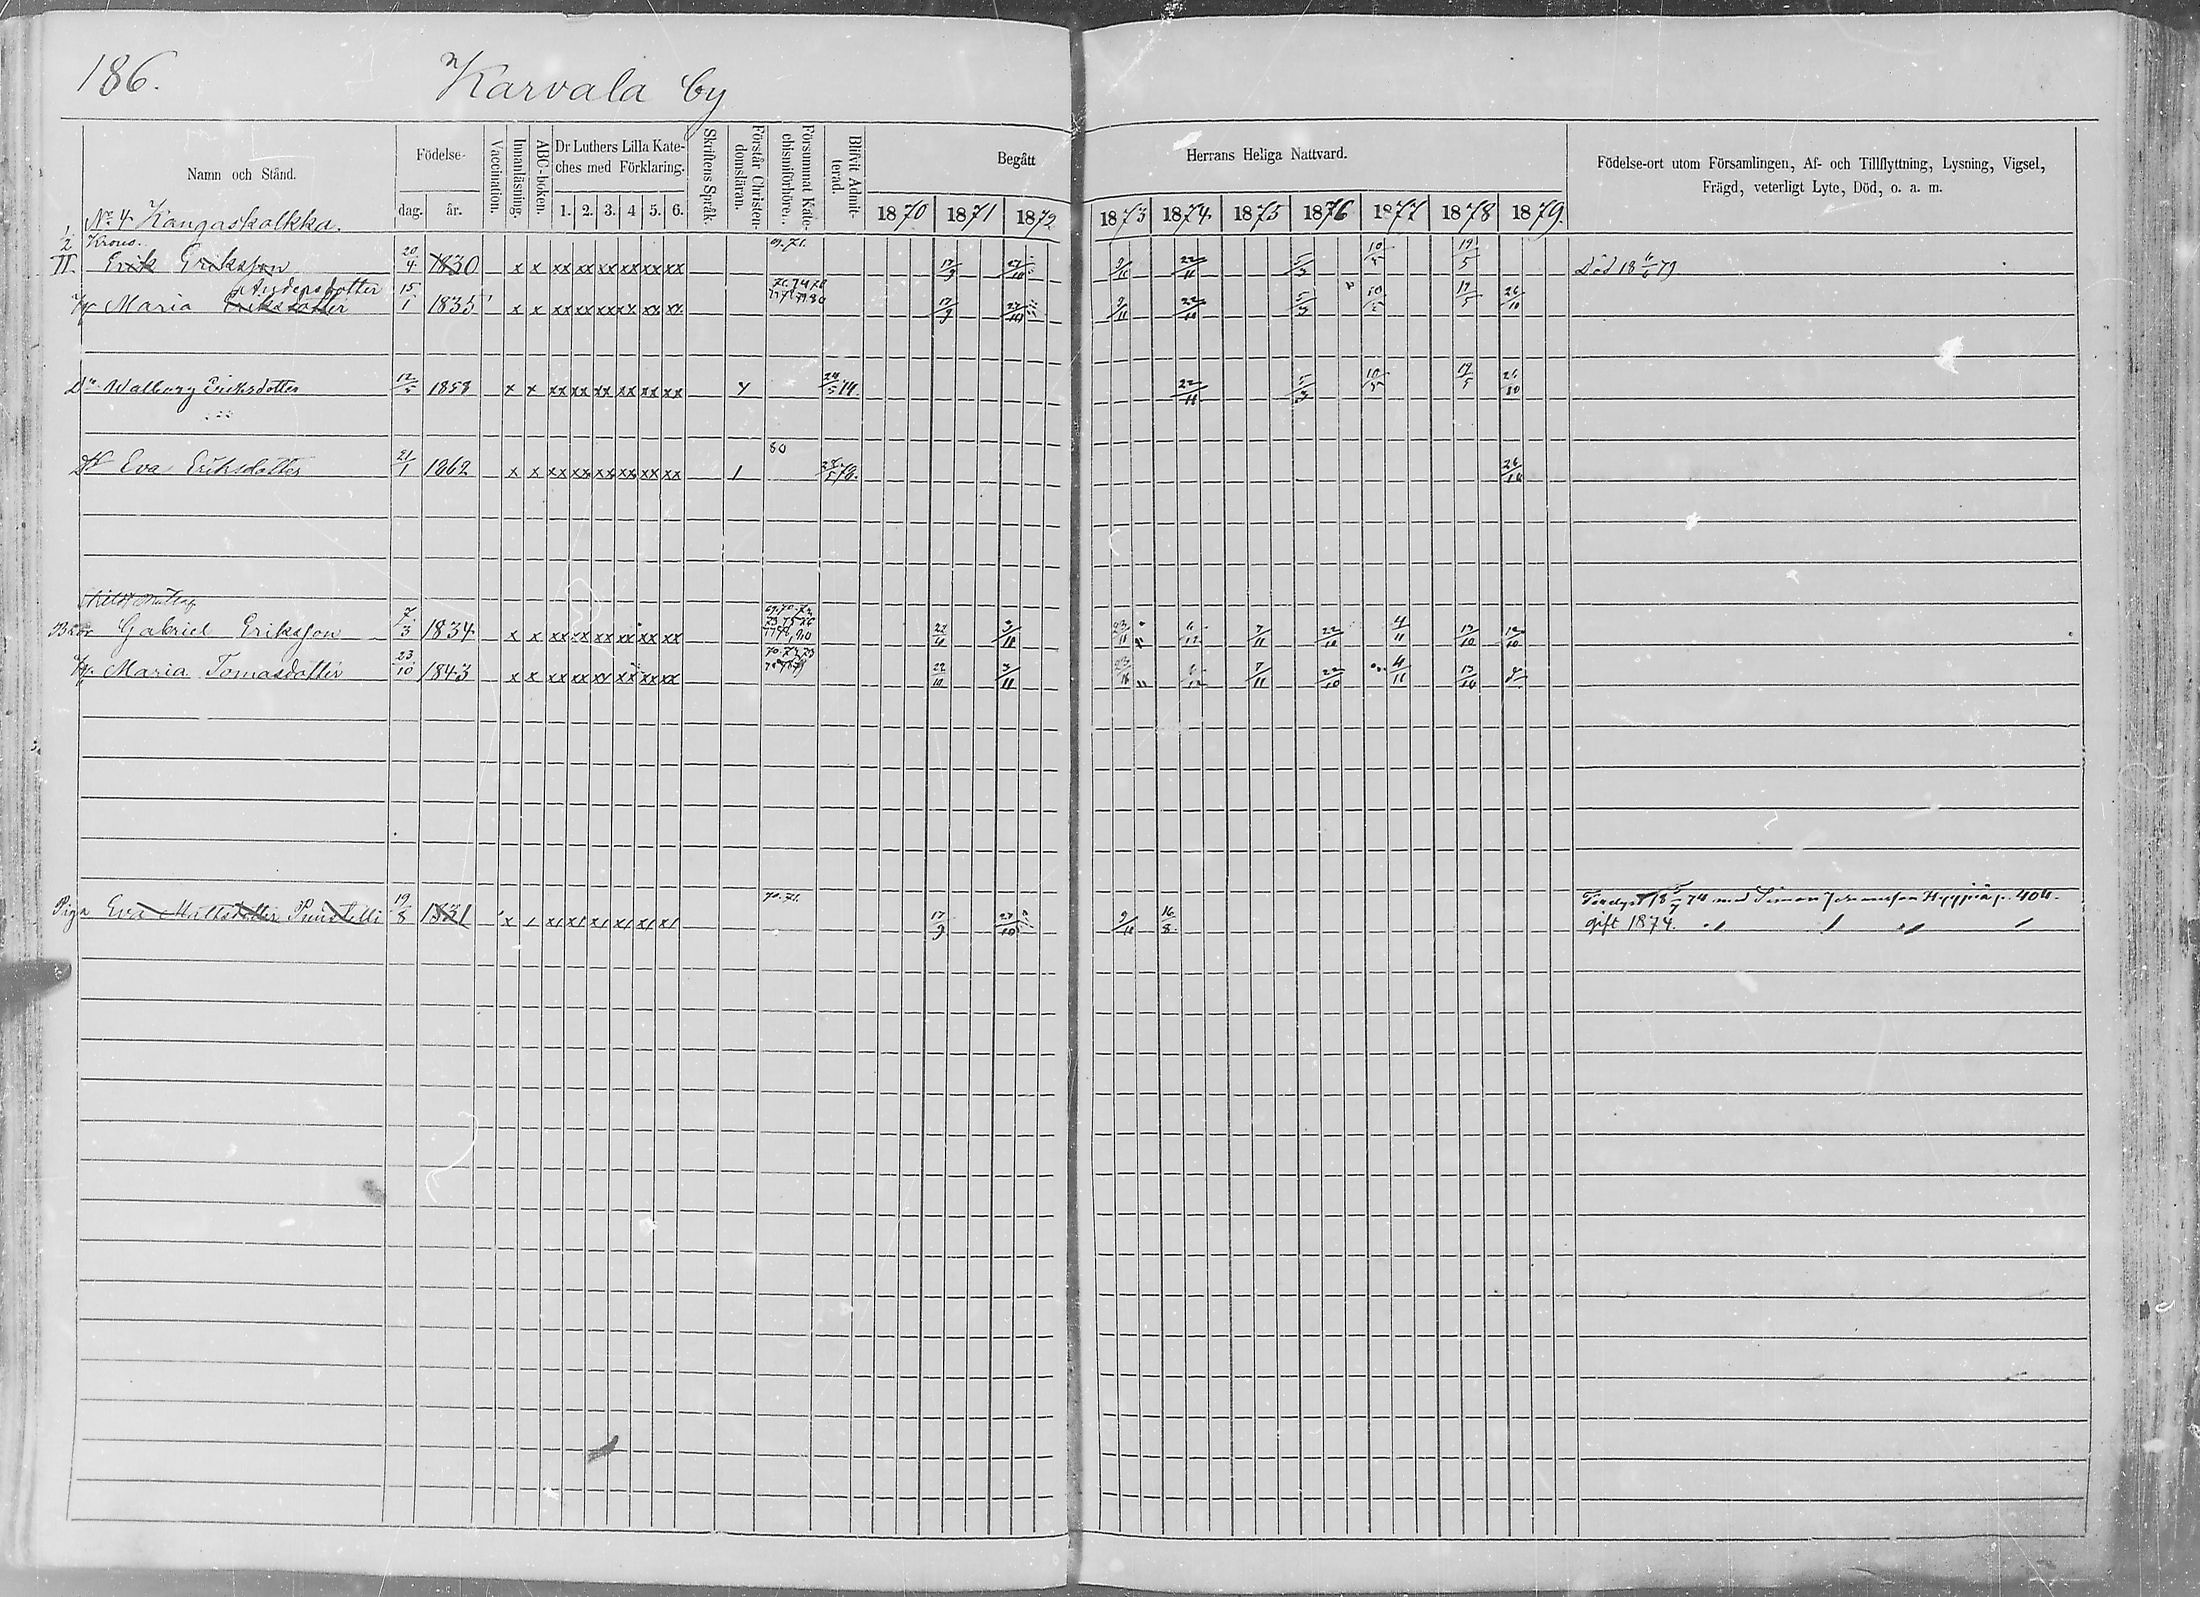 186.
Karvala by
Namn och Stånd.
Födelse-
dag.
år.
Vaccination.
Innanläsning.
ABC-boken.
Dr Luthers Lilla Kate-
ches med Förklaring.
1. 2. 3. 4 5. 6.
Skriftens Språk.
Förstår Christen-
domsläran.
Försummat Kate-
chismiförhöre.
Blifvit Admit-
terad.
Begått
Herrans Heliga Nattvard.
1870 1871 1872
1873 1874 1875 1876 1877 1878 1879.
Födelse-ort utom Församlingen, Af- och Tillflyttning, Lysning, Vigsel,
Frägd, veterligt Lyte, Död, o. a. m.
No 4 Kangaskolkka.
1/2 Krono.
II. Erik Eriksson 20/4 1830 x x xx xx xx xx xx xx 69.71. 17/9 9/11 22/11 5/3 10/5 19/5 Död 18 6/6 79
Andersdotter
Maria Eriksdotter 15/1 1835 x x xx xx xx xx xx xx 17/9 9/11 5/3 19/5 26/10
Dr Walborg Eriksdotter 12/5 1858 x x xx xx xx xx xx xx 24/5 74. 22/11 5/3 10/5 19/5 26/10
80
Dr Eva Eriksdotter 21/1 1862 x x xx xx xx xx xx xx 1 78. 26/10
Bror Gabriel Eriksson 7/3 1834 x x xx xx xx xx xx xx 3/11 7/11 22/10 4/11 13/10
Maria Tomasdotter 23/10 1843 x x xx xx xx xx xx xx 22/10 3/11 7/11 22/10 4/11 13/10
Piga Eva Mattsdotter 19/8 1831 70.71. 17/9 27/10 9/11 16/8 74 med Simon Johansson Hyypiä p. 404.
gift 1874.